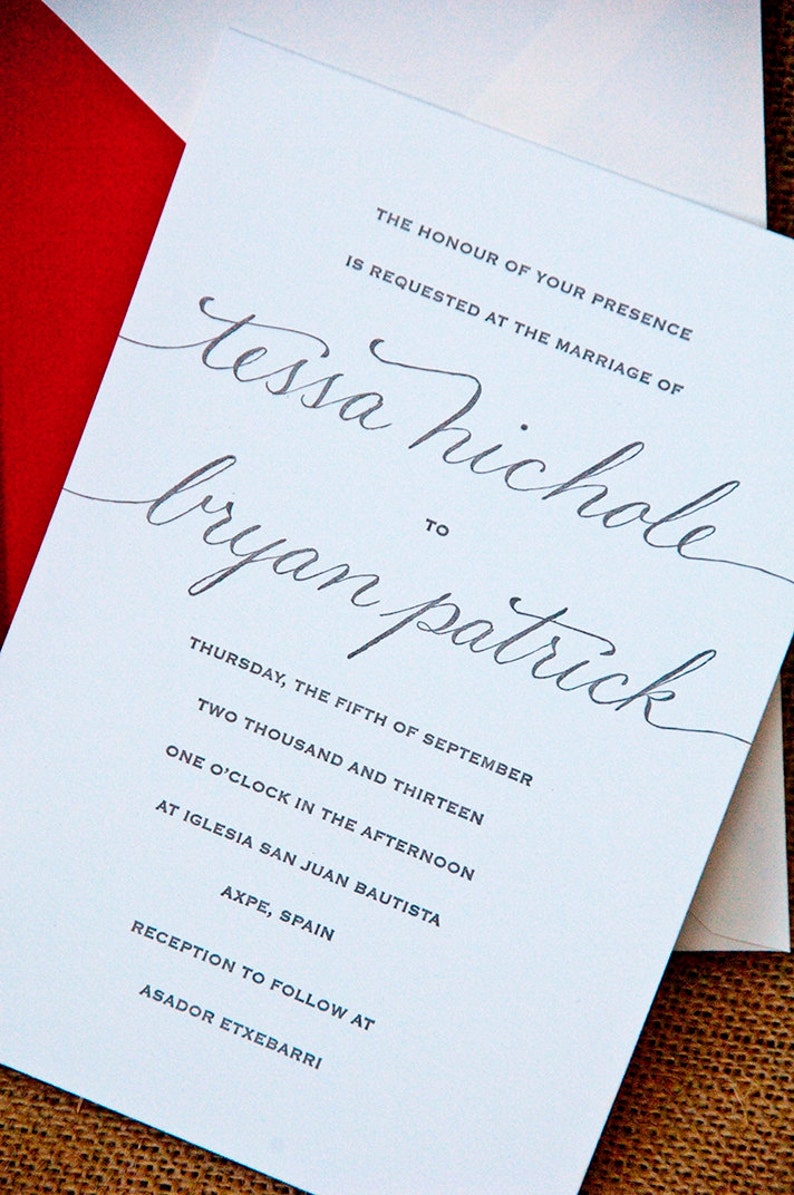 THE HONOUR OF YOUR PRESENCE
IS REQUESTED AT THE MARRIAGE OF
tessa nichole
TO
bryan patrick
THURSDAY, THE FIFTH OF SEPTEMBER
TWO THOUSAND AND THIRTEEN
ONE O'CLOCK IN THE AFTERNOON
AT IGLESIA SAN JUAN BAUTISTA
AXPE, SPAIN
RECEPTION TO FOLLOW AT
ASADOR ETXEBARRI